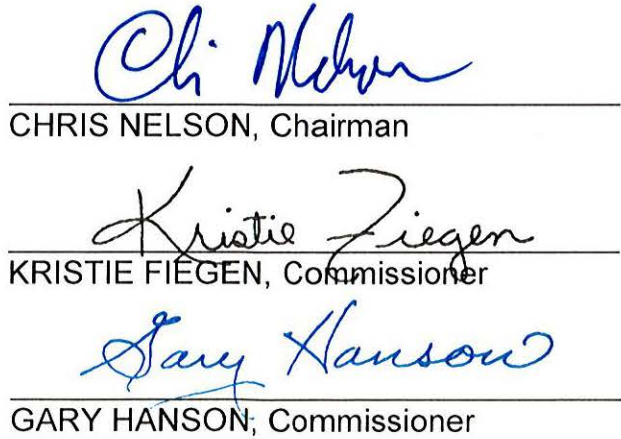 Chris Nelson
CHRIS NELSON, Chairman
Kristie Fiegen
KRISTIE FIEGEN, Commissioner
Gary Hanson
GARY HANSON, Commissioner